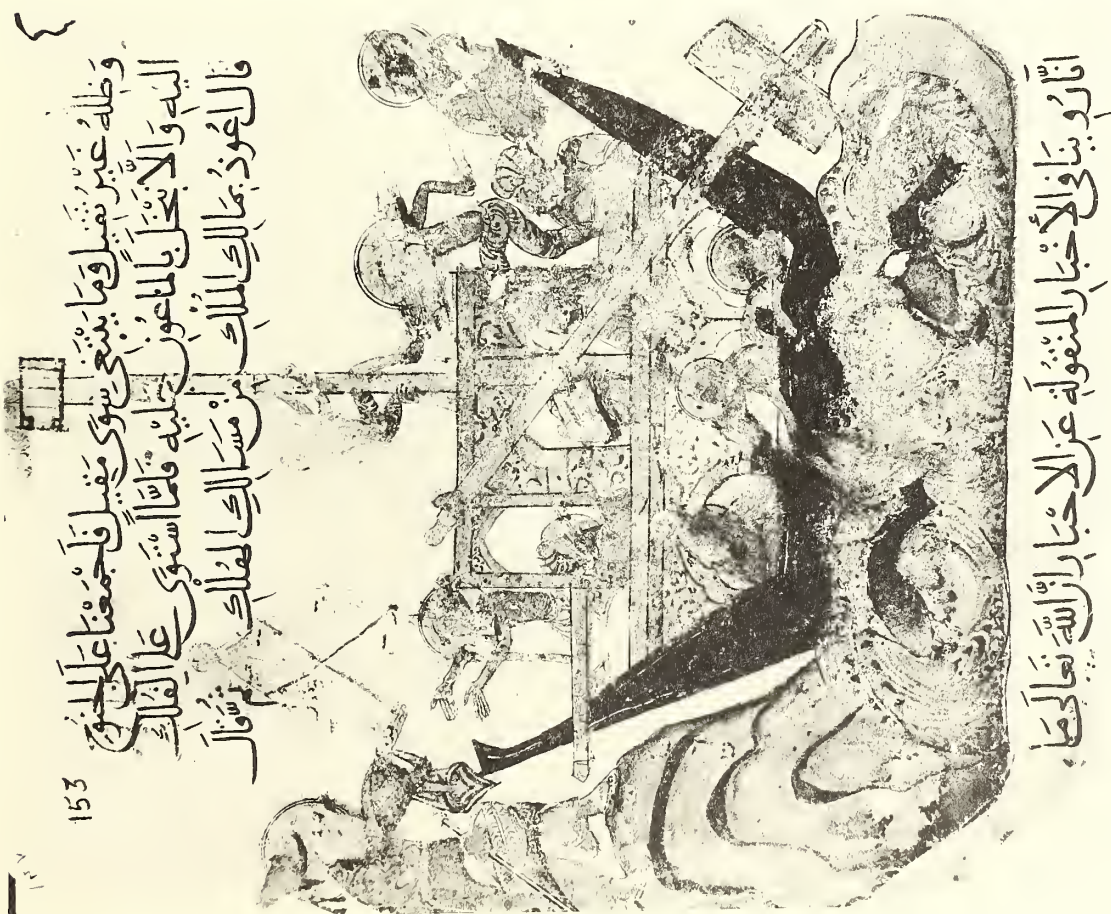 153
وَظِلُّهُ غَيْرُ ثَقِيل وَمَا يَبْتَغِي سِوَى مَقِيل فَاَجْمَعْنَا عَلَى الجُنُوحِ
اليْهِ وَاَلّا نَبْخَلَ بِالمَاعُونِ عَلَيْهِ فَلَمَّا اسْتَوَى عَلَى الفُلْكِ
قَالَ اعُوذُ بِمَالِكِ المُلْكِ مِنْ مَسَالِكِ الهُلْكِ ثُمَّ قَالَ
اِنَّا رُوِينَا فِي الأَخْبَارِ المَنْقُولَةِ عَنِ الاحْبَارِ انَّ اللّهَ تَعَالَى مَا